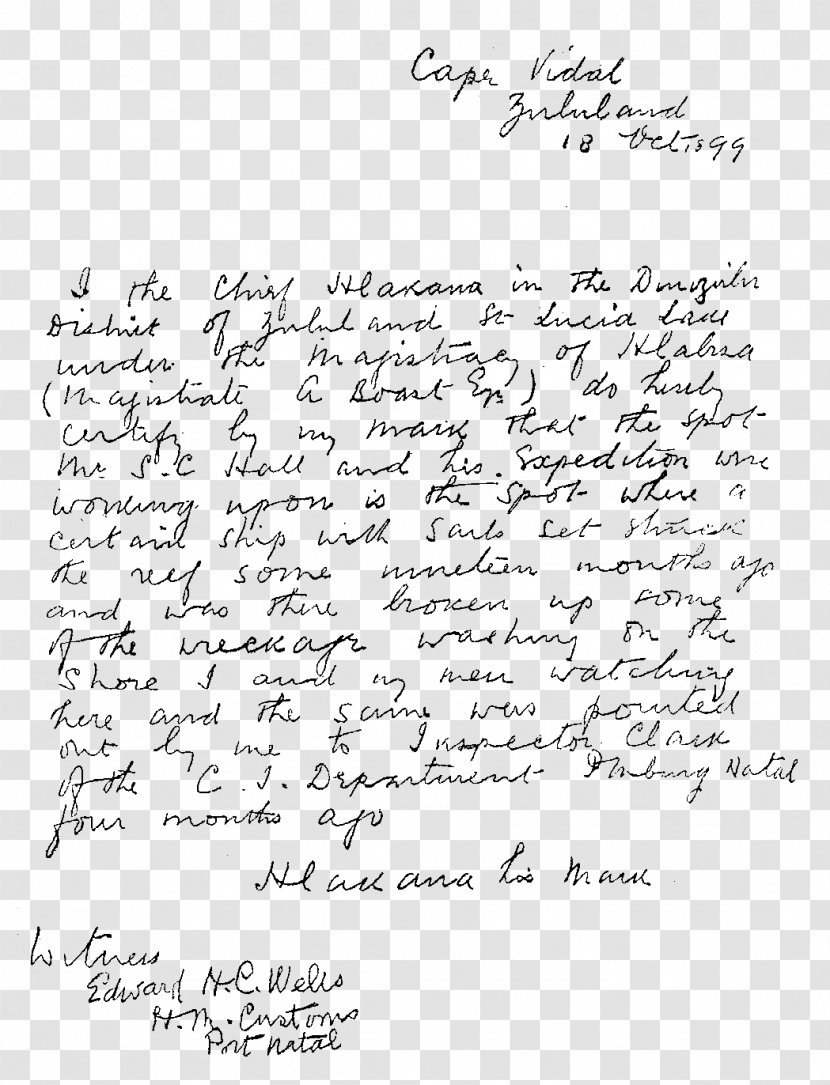 Cape Vidal
Zululand
18 Oct 1899
I the Chief Hlakana in the Dinuzulu
District of Zululand St Lucia Lake
under the Magistracy of Hlabisa
(Magistrate A Boast Esq) do hereby
certify by my mark that the spot
Mr S.C Hall and his Expedition were
working upon is the spot where a
certain ship with sails set struck
the reef some nineteen months ago
and was there broken up some
of the wreckage washing on the
shore I and my men watching
here and the same was pointed
out by me to Inspector Clark
of the C. I. Department PMburg Natal
four months ago
Hlakana his Mark
Witness
Edward H.C. Wells
H.M. Customs
Port Natal